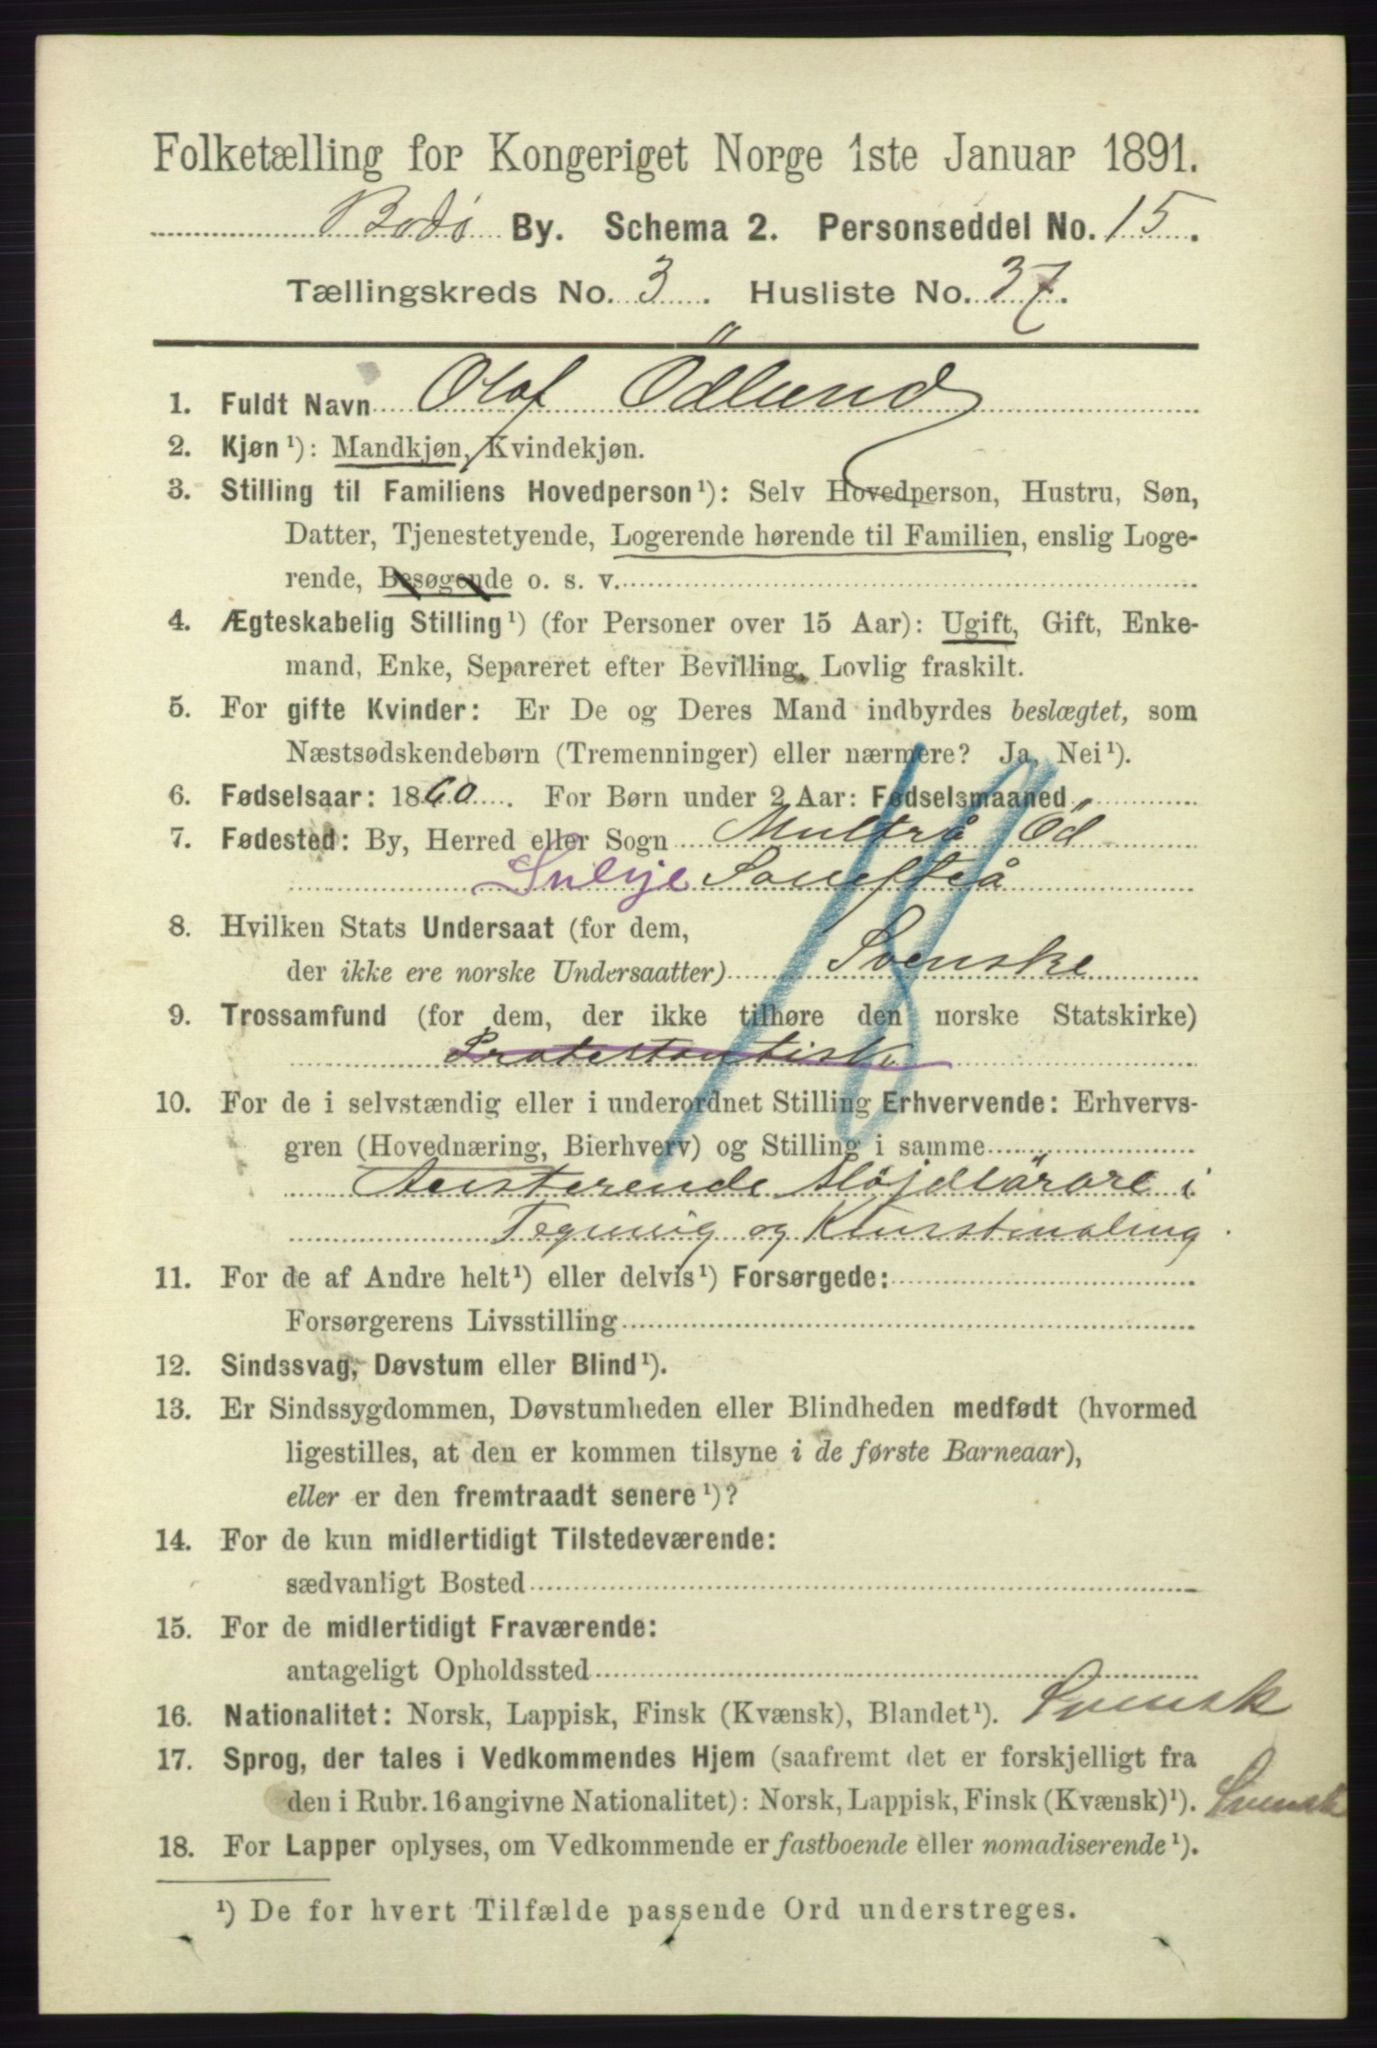 Folketælling for Kongeriget Norge 1ste Januar 1891.
Bodø By. Schema 2. Personseddel No. 15.
Tællingskreds No. 3. Husliste No. 37.
1. Fuldt Navn Olof Ödlund
2. Kjøn¹): Mandkjøn, Kvindekjøn.
3. Stilling til Familiens Hovedperson¹): Selv Hovedperson, Hustru, Søn,
Datter, Tjenestetyende, Logerende hørende til Familien, enslig Loge-
rende, Besøgende o. s. v.
4. Ægteskabelig Stilling¹) (for Personer over 15 Aar): Ugift, Gift, Enke-
mand, Enke, Separeret efter Bevilling, Lovlig fraskilt.
5. For gifte Kvinder: Er De og Deres Mand indbyrdes beslægtet, som
Næstsødskendebørn (Tremenninger) eller nærmere? Ja, Nei¹).
6. Fødselsaar: 1860. For Børn under 2 Aar: Fødselsmaaned
7. Fødested: By, Herred eller Sogn Multrå Öd
8. Hvilken Stats Undersaat (for dem,
der ikke ere norske Undersaatter) Svenske
9. Trossamfund (for dem, der ikke tilhøre den norske Statskirke)
Protestantisk
10. For de i selvstændig eller i underordnet Stilling Erhvervende: Erhvervs-
gren (Hovednæring, Bierhverv) og Stilling i samme
Slöjdlärare i
Tegning og Kunstmaling
11. For de af Andre helt¹) eller delvis¹) Forsørgede:
Forsørgerens Livsstilling
12. Sindssvag, Døvstum eller Blind¹).
13. Er Sindssygdommen, Døvstumheden eller Blindheden medfødt (hvormed
ligestilles, at den er kommen tilsyne i de første Barneaar),
eller er den fremtraadt senere¹)?
14. For de kun midlertidigt Tilstedeværende:
sædvanligt Bosted
15. For de midlertidigt Fraværende:
antageligt Opholdssted
16. Nationalitet: Norsk, Lappisk, Finsk (Kvænsk), Blandet¹). Svensk
17. Sprog, der tales i Vedkommendes Hjem (saafremt det er forskjelligt fra
den i Rubr. 16 angivne Nationalitet): Norsk, Lappisk, Finsk (Kvænsk)¹). Svensk
18. For Lapper oplyses, om Vedkommende er fastboende eller nomadiserende¹).
¹) De for hvert Tilfælde passende Ord understreges.